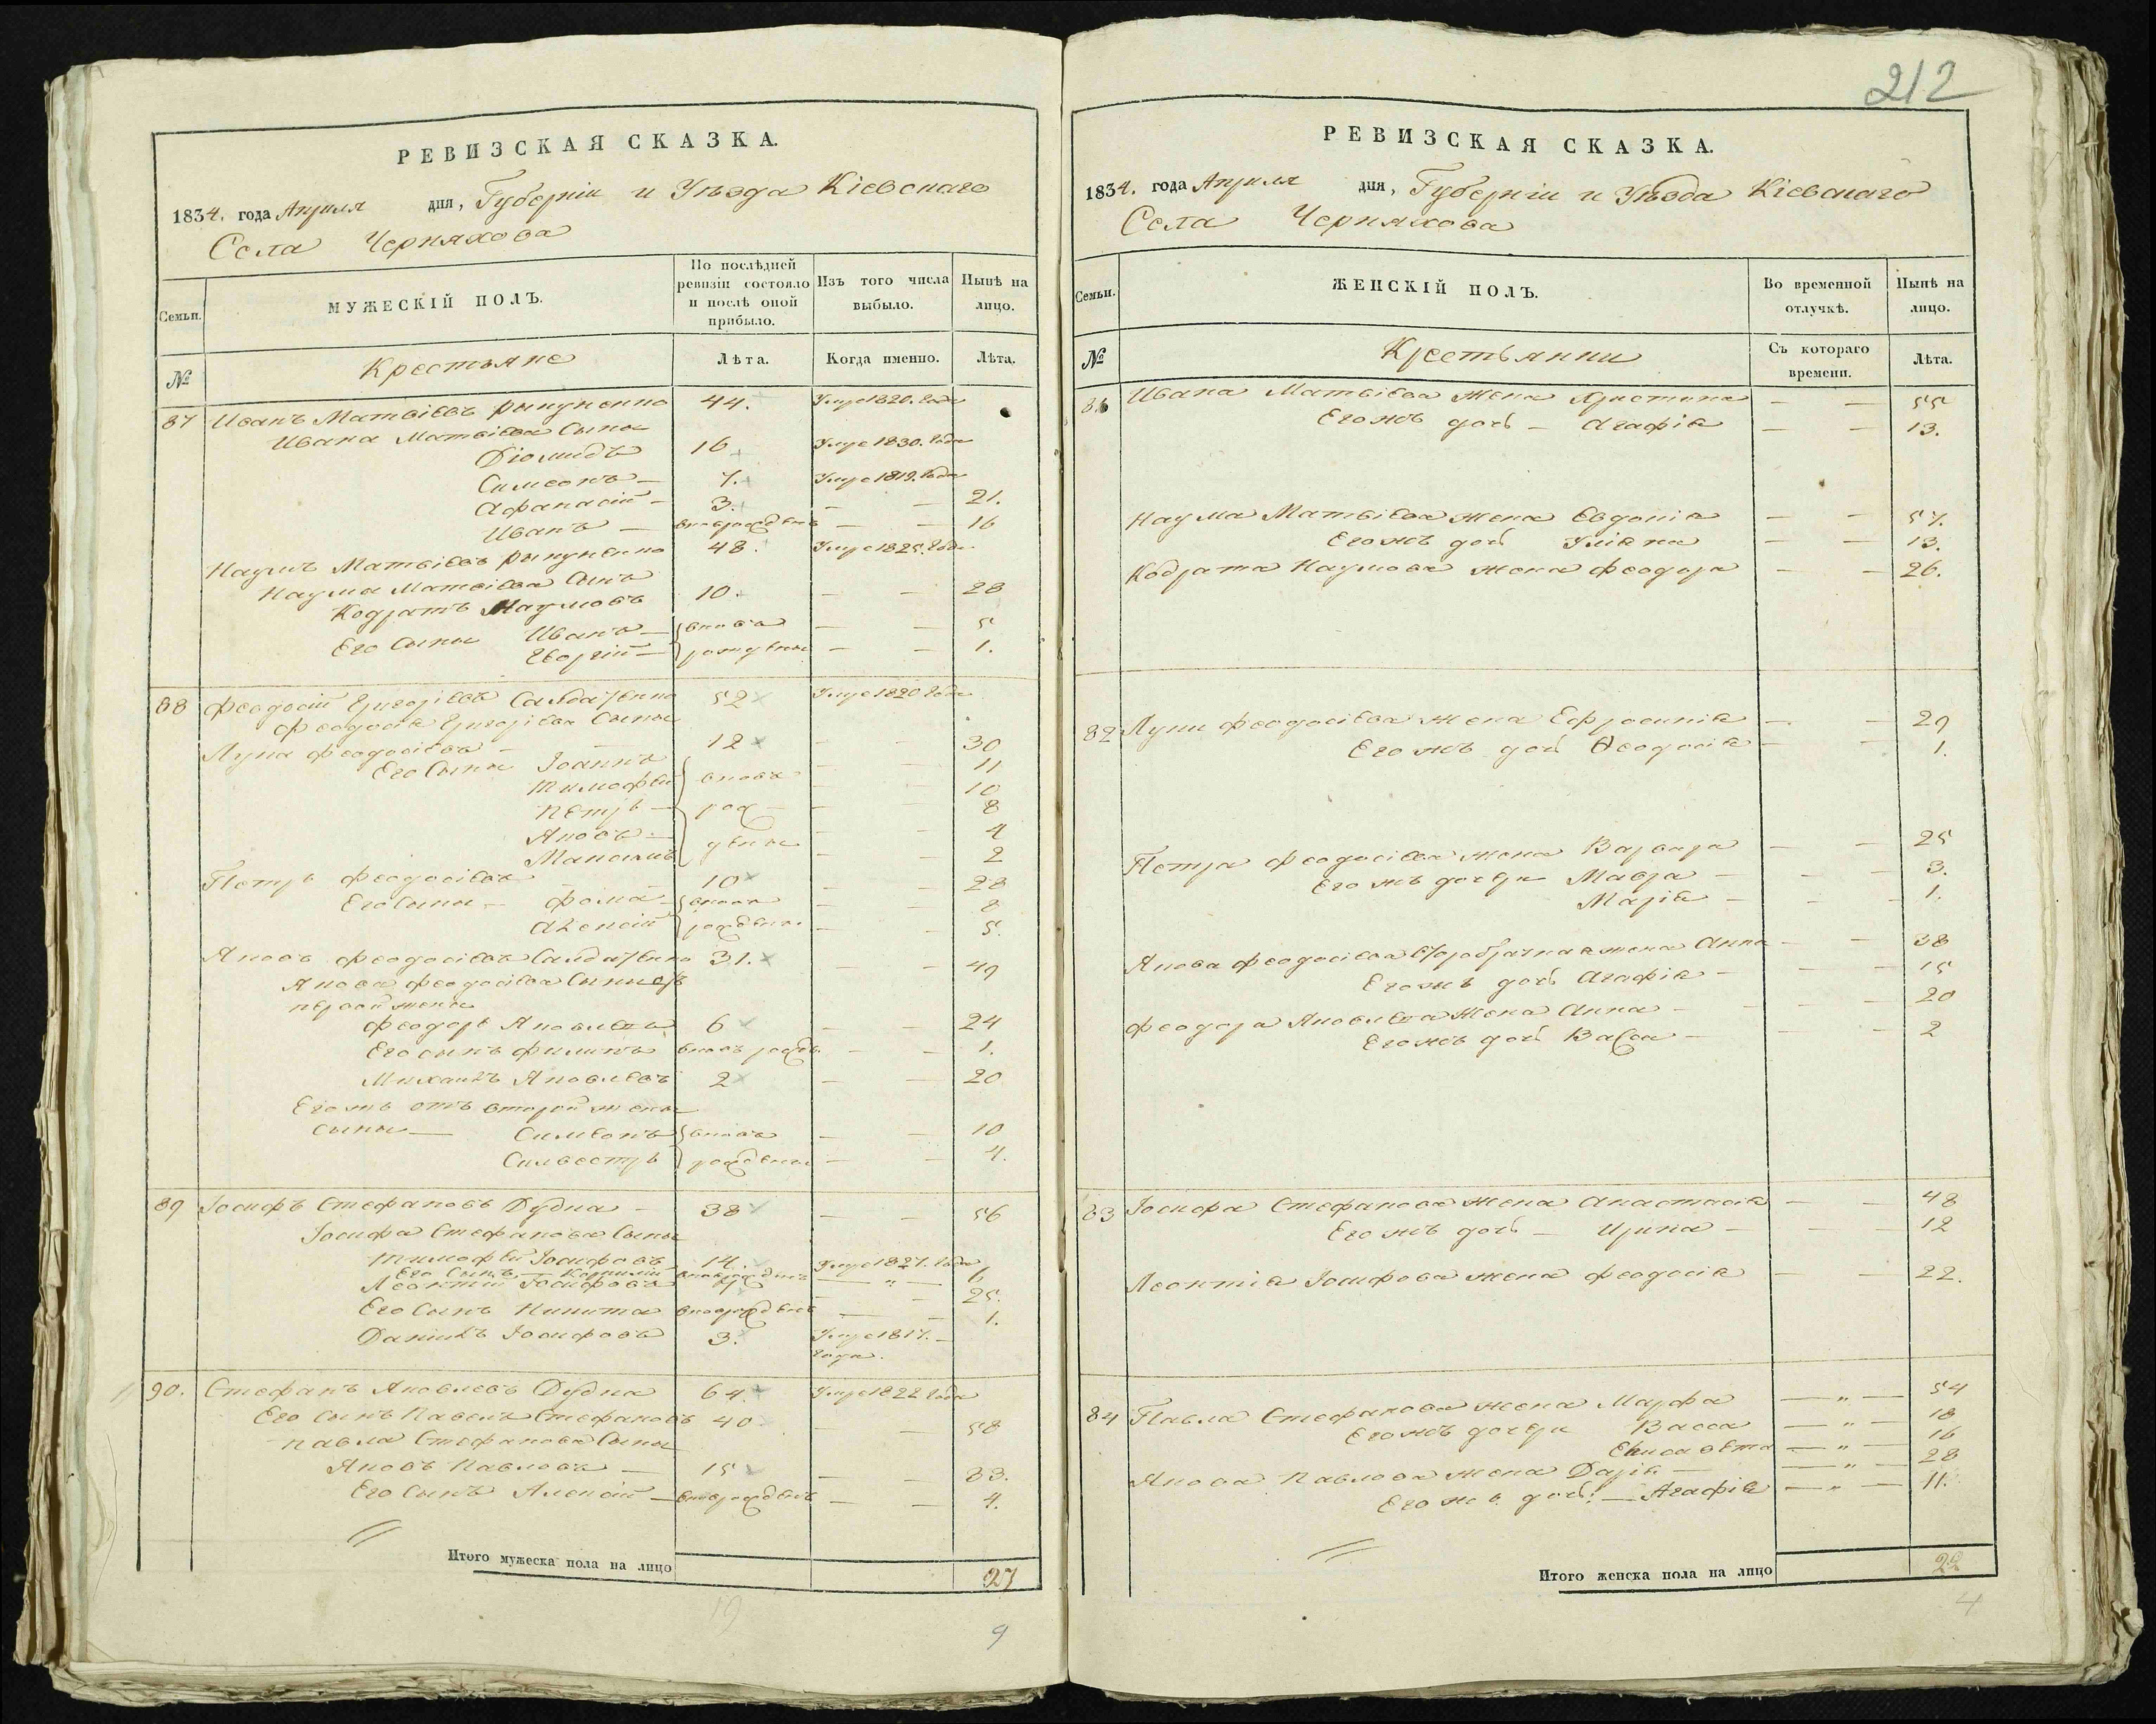 РЕВИЗСКАЯ СКАЗКА.
1834. года Апреля дня, Губерніи и Уѣзда Кіевскаго
Села Черняхова
Семьи.
МУЖЕСКІЙ ПОЛЪ.
По послѣдней ревизіи состояло и послѣ оной прибыло.
Изъ того числа выбыло.
Нынѣ на лицо.
№
Крестьяне
Лѣта.
Когда именно.
Лѣта.
87 Иванъ Матвіевъ 44. Умре 1820. года
Ивана Матвіева Сыны
Діомидъ 16 Умре 1830. года
Симеонъ — 7. Умре 1819. года
Афанасій — 3. — — 21.
Иванъ — — — 16
Наумъ Матвіевъ 48. Умре 1825. года
Наума Матвіева Сынъ
Кодратъ Наумовъ 10. — — 28
Его Сыны Иванъ — вновь — — 5
Георгій — рожденны — — 1.
88 Феодосій Григоріевъ 52 Умре 1820 года
Феодосія Григоріева Сыны
Лука Феодосіевъ — 12 — — 30
Его Сыны Іоаннъ — — 11
Тимофей вновь — — 10
Петръ — рож — — — 8
Яковъ — — — 4
Максимъ денны — — 2
Петръ Феодосіевъ 10 — — 28
Его Сыны — Фома — вновь — — 8
Алексій рожденны — — 5.
Яковъ Феодосіевъ 31. — — 49
Якова Феодосіева Сыны отъ
первой жены
Феодоръ Яковлевъ 6 — — 24
Его сынъ Филипъ вновь рожд — — 1.
Михаилъ Яковлевъ 2 — — 20
Его жъ отъ второй жены
сыны — Симеонъ вновь — — 10
Силвестръ рожденны — — 4.
89 Іосифъ Стефановъ Дудка — 38 — — 56
Іосифа Стефанова Сыны
Тимофей Іосифовъ 14. Умре 1827. года
Его Сынъ — — „ — 6
Леонтій Іосифовъ 7 — — 25.
Его Сынъ Никита — — 1.
Даніилъ Іосифовъ 3. Умре 1817. —
года.
90. Стефанъ Яковлевъ Дудка 64. Умре 1822 года
Его сынъ Павелъ Стефановъ 40 — — 58
Павла Стефанова Сыны
Яковъ Павловъ — 15 — — 33.
Его Сынъ Алексій — — — 4.
Итого мужеска пола на лицо 27
19
9
212
РЕВИЗСКАЯ СКАЗКА.
1834. года Апреля дня, Губерніи и Уѣзда Кіевскаго
Села Черняхова
Семьи.
ЖЕНСКІЙ ПОЛЪ.
Во временной отлучкѣ.
Нынѣ на лицо.
№
Крестьянки
Съ котораго времени.
Лѣта.
Ивана Матвіева жена Христина — — 55
Его жъ дочь — Агафія — — 13.
Наума Матвіева жена Евдокія — — 57.
Его жъ дочь Уліяна — — 13.
Кодрата Наумова жена Феодора — — 26.
82 Луки Феодосіева жена Ефросинія — — 29
Его жъ дочь Феодосія — — 1.
Петра Феодосіева жена Варвара — — 25
Его жъ дочери Мавра — — — 3.
Марія — — — 1.
Якова Феодосіева второбрачная жена Анна — — 38
Его жъ дочь Агафія — — — 15
Феодора Яковлева жена Анна — — — 20
Его жъ дочь Васса — — — 2
83 Іосифа Стефанова жена Анастасія — — 48
Его жъ дочь — Ирина — — — 12
Леонтія Іосифова жена Феодосія — — 22.
84 Павла Стефанова жена Марфа — „ — 54
Его жъ дочери Васса — „ — 18
Елисавета — „ — 16
Якова Павлова жена Дарія — — „ — 28
Его жъ дочь: — Агафія — „ — 11.
Итого женска пола на лицо 22
4